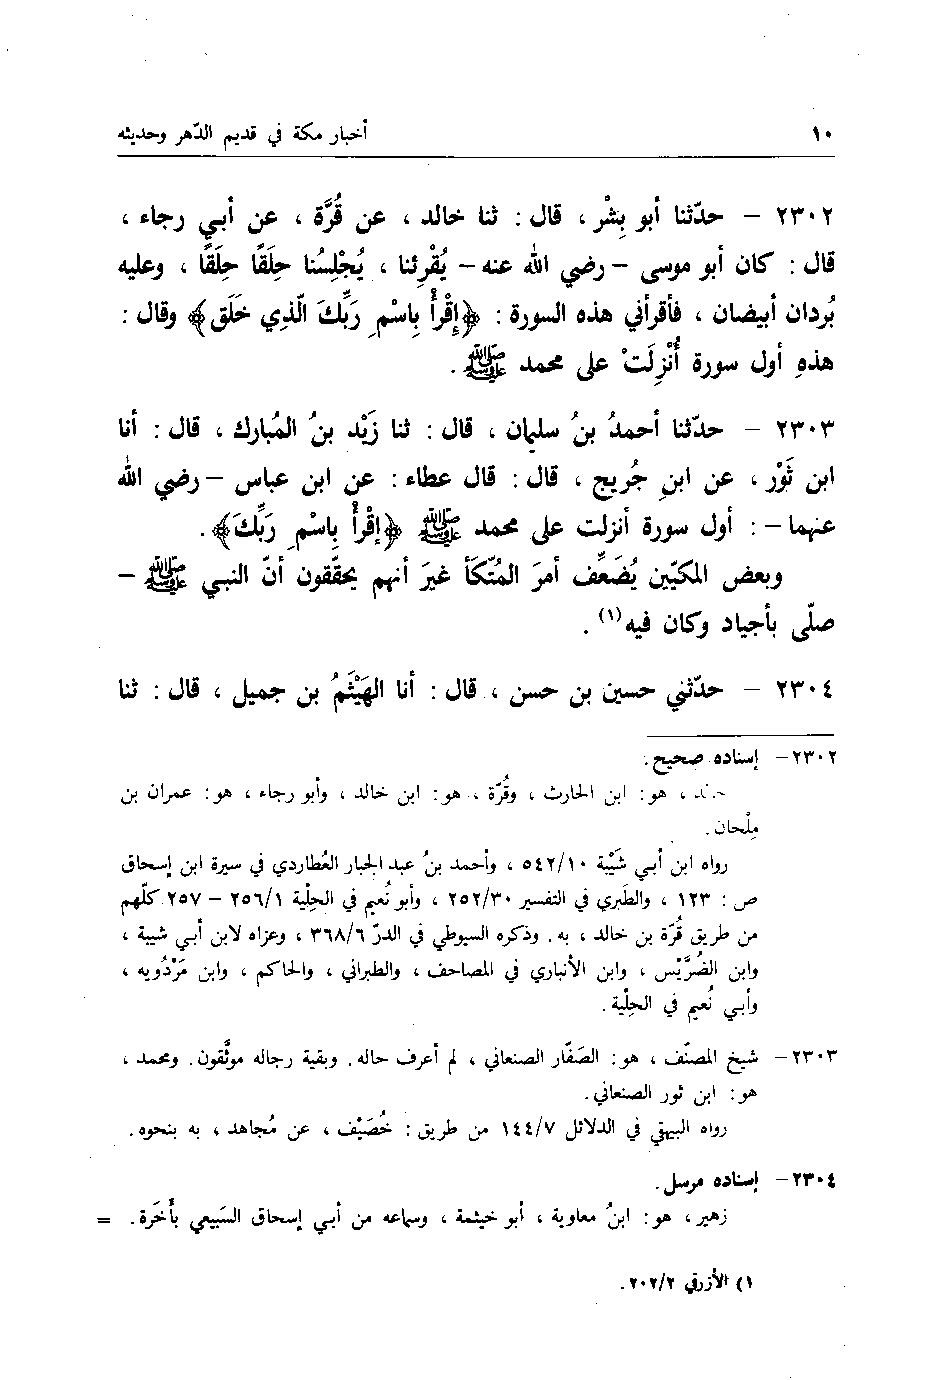 ١٠ أخبار مكة في قديم الدّهر وحديثه
٢٣٠٢ – حدّثنا أبو بِشْر ، قال : ثنا خالد ، عن قُرَّة ، عن أبي رجاء ،
قال : كان أبو موسى – رضي الله عنه – يُقْرِئنا ، يُجْلِسُنا حِلَقًا حِلَقًا ، وعليه
بُردان أبيضان ، فأقرأني هذه السورة : ﴿إِقْرأْ بِاسْمِ رَبِّكَ الَّذِي خَلَق﴾ وقال :
هذهِ أول سورة أُنْزِلَتْ على محمد ﷺ .
٢٣٠٣ – حدّثنا أحمدُ بنُ سليمان ، قال : ثنا زَيْد بنُ المُبارك ، قال : أنا
ابن ثَوْر ، عن ابنِ جُريج ، قال : قال عطاء : عن ابن عباس – رضي الله
عنهما – : أول سورة أنزلت على محمد ﷺ ﴿إقْرأْ بِاسْمِ رَبِّكَ﴾ .
وبعض المكيّين يُضَعِّف أمرَ المُتّكَأ غيرَ أنهم يحقّقون أنّ النبي ﷺ –
صلّى بأجياد وكان فيه(١) .
٢٣٠٤ – حدّثني حسين بن حسن ، قال : أنا الهَيْثَمُ بن جميل ، قال : ثنا
٢٣٠٢ – إسناده صحيح .
، هو : ابن الحارث ، وقُرّة ، هو : ابن خالد ، وأبو رجاء ، هو : عمران بن
مِلْحان .
رواه ابن أبي شَيْبة ٥٤٢/١٠ ، وأحمد بنُ عبد الجبار العُطاردي في سيرة ابن إسحاق
ص : ١٢٣ ، والطَبري في التفسير ٢٥٢/٣٠ ، وأبو نُعيم في الحِلْية ٢٥٦/١ – ٢٥٧ كلّهم
من طريق قُرّة بن خالد ، به . وذكره السيوطي في الدرّ ٣٦٨/٦ ، وعزاه لابن أبي شيبة ،
وابن الضُرَيْس ، وابن الأنباري في المصاحف ، والطبراني ، والحاكم ، وابن مَرْدُويه ،
وأبي نُعيم في الحِلْية .
٢٣٠٣ – شيخ المصنّف ، هو : الصَفّار الصنعاني ، لم أعرف حاله . وبقية رجاله موثَّقون . ومحمد ،
هو : ابن ثور الصنعاني .
رواه البيهقي في الدلائل ١٤٤/٧ من طريق : خُصَيْف ، عن مُجاهد ، به بنحوه .
٢٣٠٤ – إسناده مرسل .
زهير ، هو : ابنُ معاوية ، أبو خيثمة ، وسماعه من أبي إسحاق السَبيعي بأَخَرة . =
١) الأزرقي ٢٠٢/٢ .